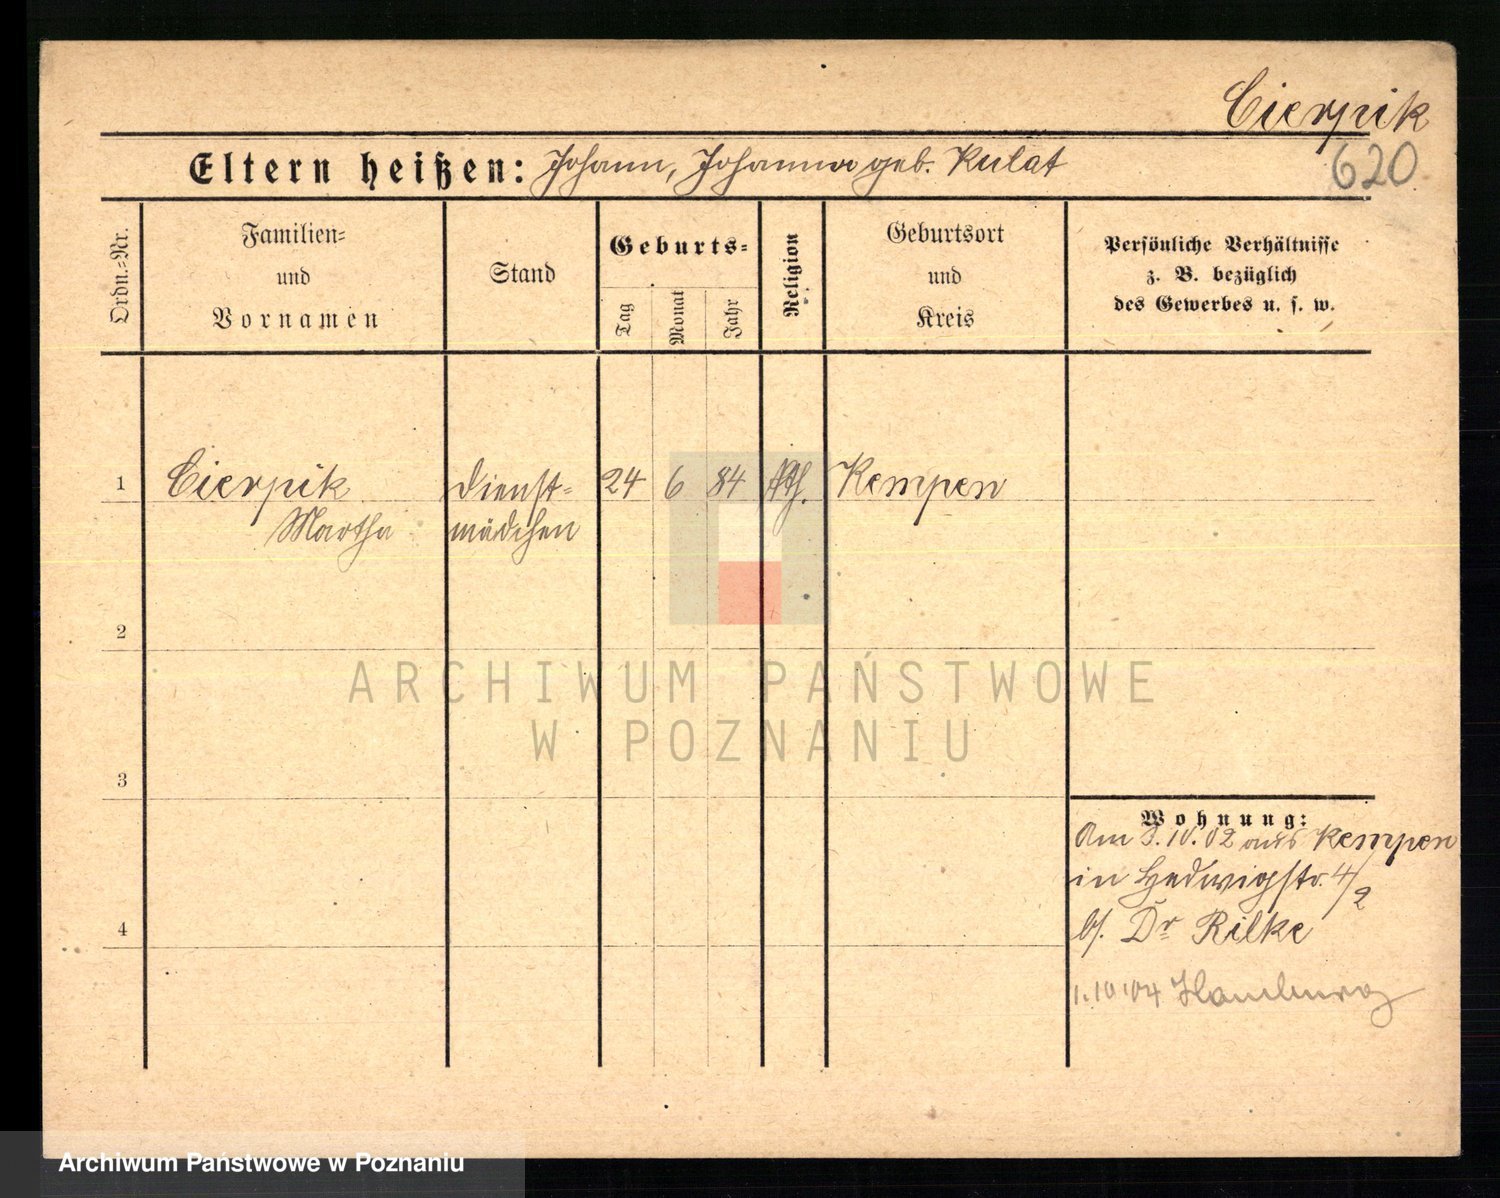 Cierpik
620
Eltern heißen: Johann, Johanna geb. Kulat
Ordn.=Nr.
Familien=
und
Vornamen
Stand
Geburts=
Tag
Monat
Jahr
Religion
Geburtsort
und
Kreis
Persönliche Verhältnisse
z. B. bezüglich
des Gewerbes u. s. w.
1
Cierpik
Martha
Dienst=
mädchen
24
6
84
kth.
Kempen
2
3
4
Wohnung:
Am 3.10.02 aus Kempen
in Hedwigstr. 4/2
b/. Dr Rilke
1.10 04 Hamburg
ARCHIWUM PAŃSTWOWE
W POZNANIU
Archiwum Państwowe w Poznaniu